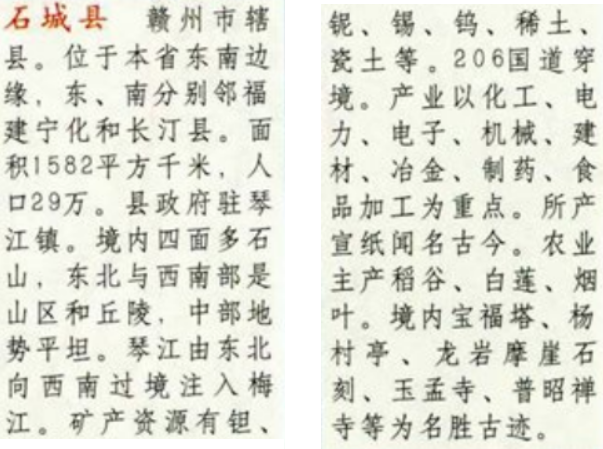 石城县 赣州市辖
县。位于本省东南边
缘，东、南分别邻福
建宁化和长汀县。面
积1582平方千米，人
口29万。县政府驻琴
江镇。境内四面多石
山，东北与西南部是
山区和丘陵，中部地
势平坦。琴江由东北
向西南过境注入梅
江。矿产资源有钽、
铌、锡、钨、稀土、
瓷土等。206国道穿
境。产业以化工、电
力、电子、机械、建
材、冶金、制药、食
品加工为重点。所产
宣纸闻名古今。农业
主产稻谷、白莲、烟
叶。境内宝福塔、杨
村亭、龙岩摩崖石
刻、玉孟寺、普昭禅
寺等为名胜古迹。